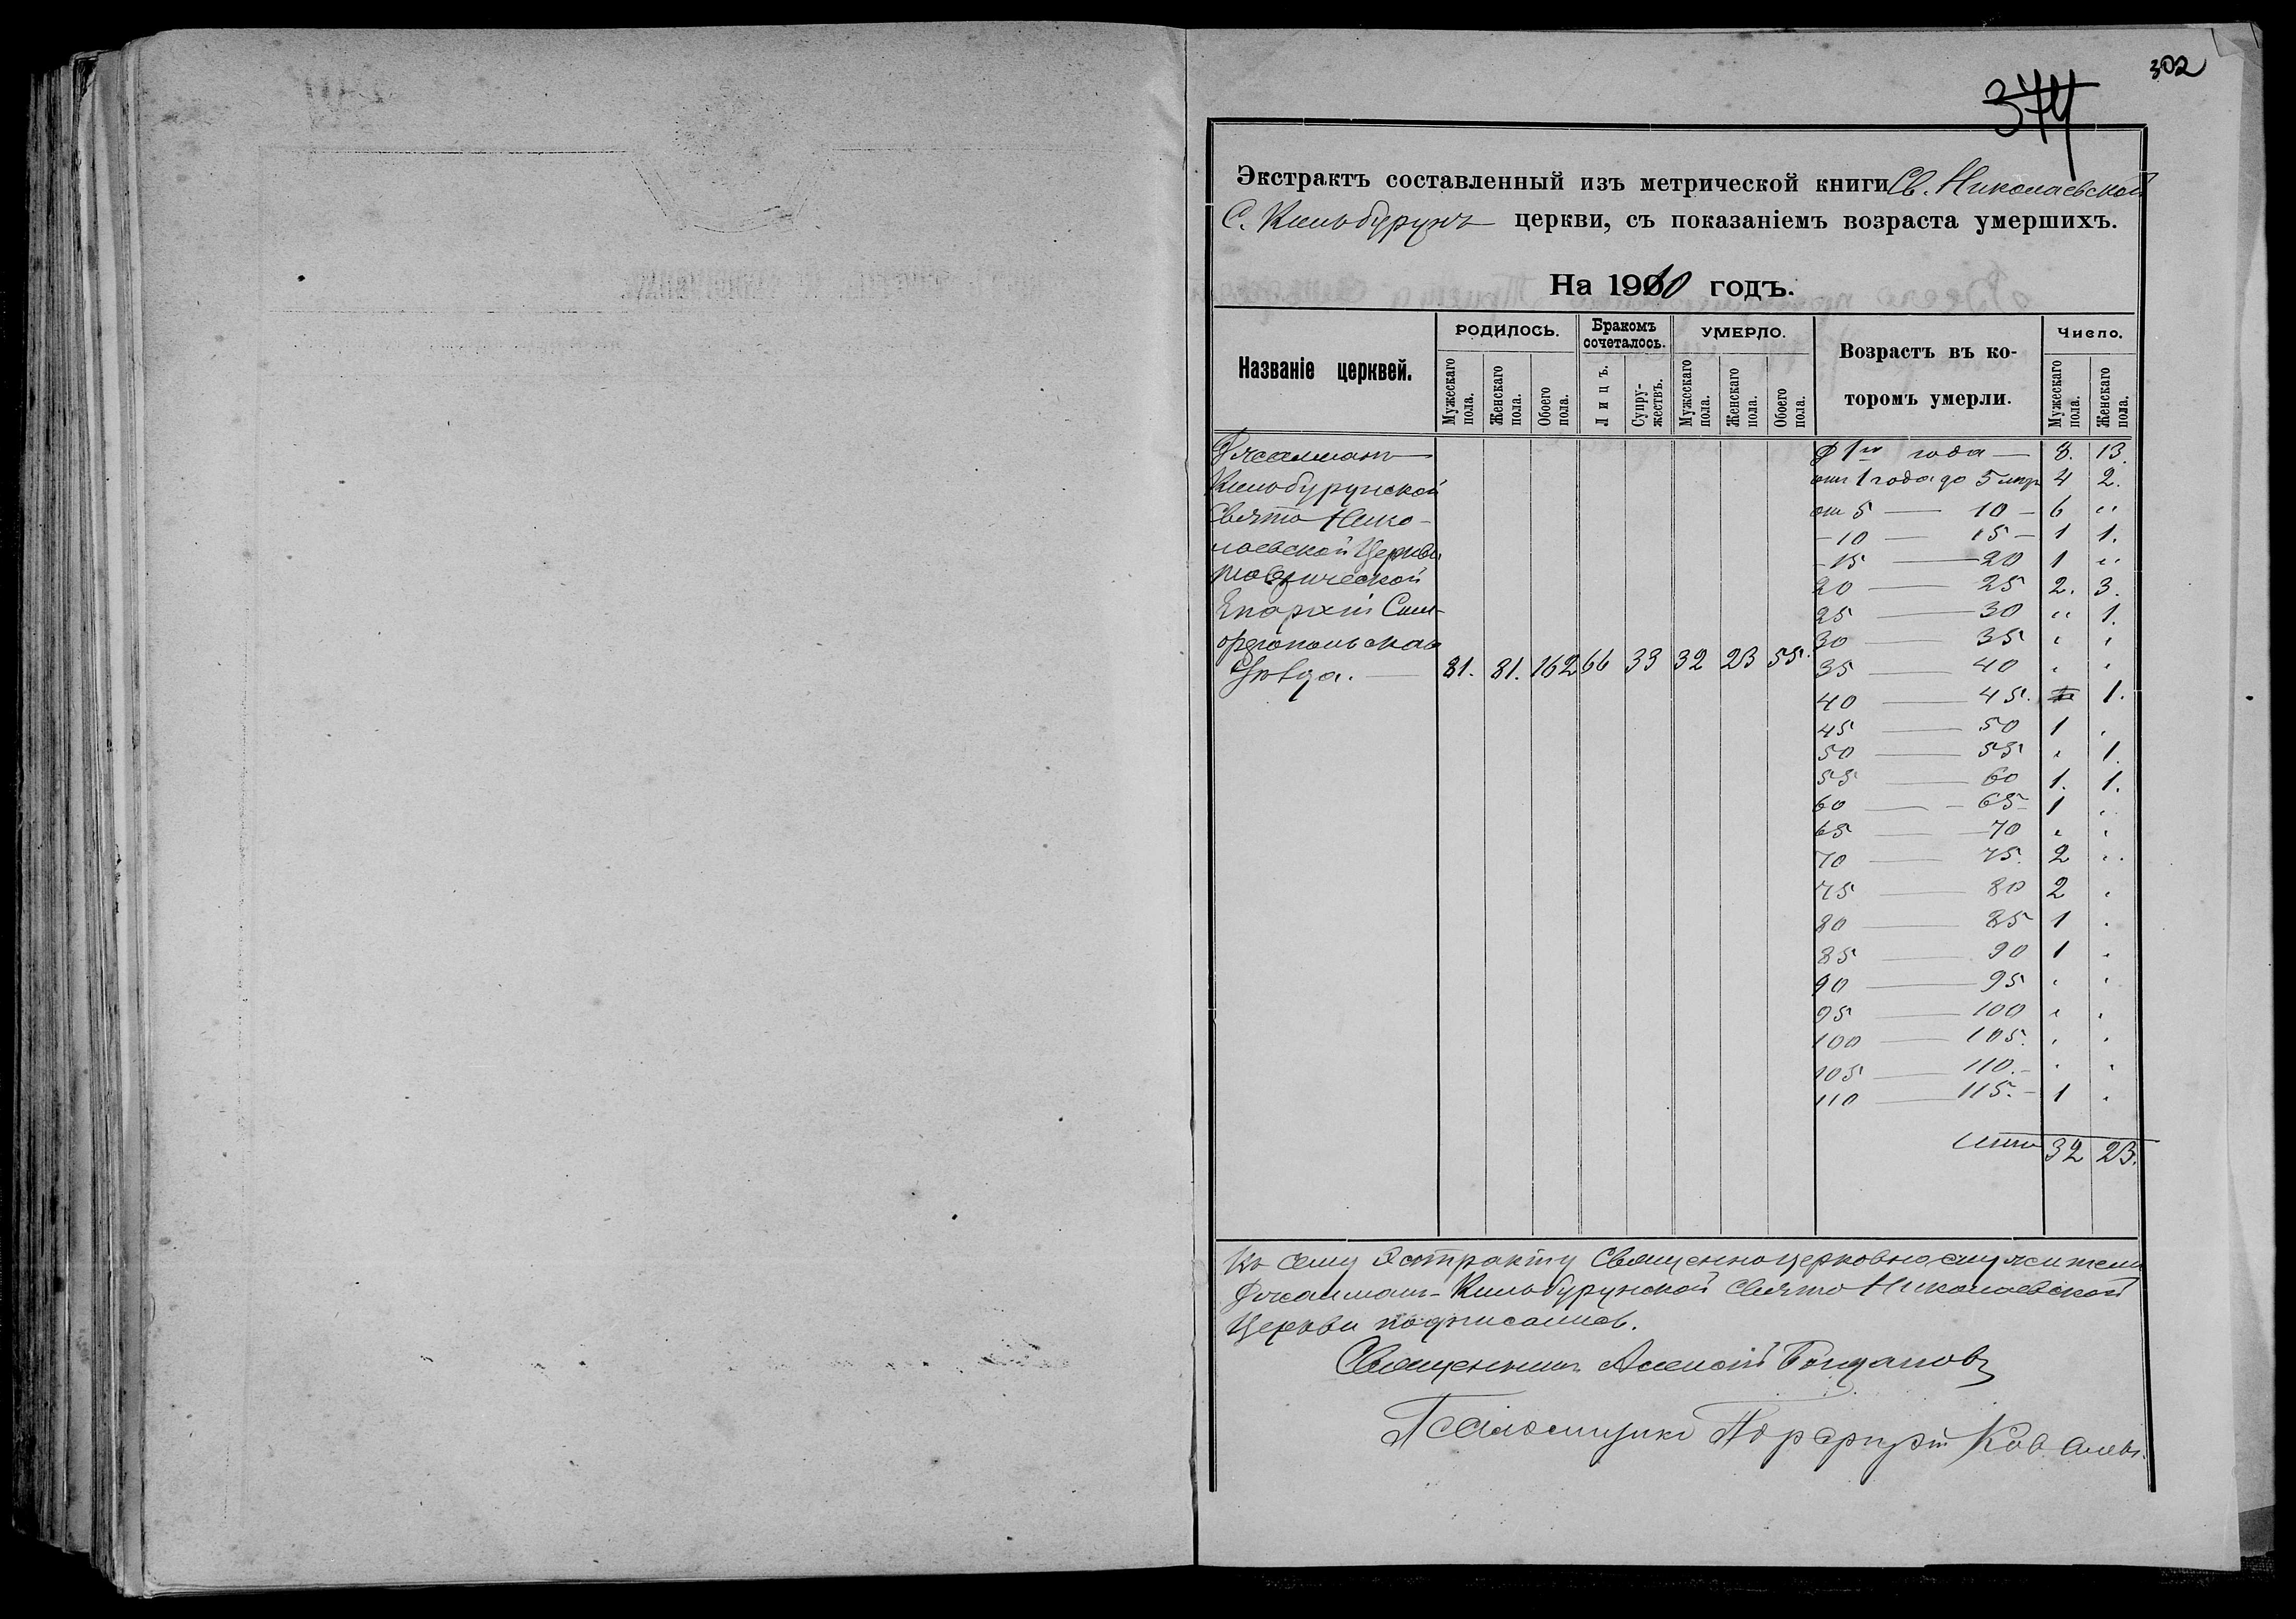 302
374
Экстрактъ составленный изъ метрической книги Св. Николаевской
С. Кильбурунъ церкви, съ показаніемъ возраста умершихъ.
На 1910 годъ.
Названіе церквей.
РОДИЛОСЬ.
Мужескаго пола.
Женскаго пола.
Обоего пола.
Бракомъ сочеталось.
Лицъ.
Супружествъ.
УМЕРЛО.
Мужескаго пола.
Женскаго пола.
Обоего пола.
Возрастъ въ которомъ умерли.
Число.
Мужескаго пола.
Женскаго пола.
Джалманъ
Кильбурунской
Свято Нико-
лаевской Церкви
Таврической
Епархіи Сим-
феропольскаго
Уѣзда. — 81. 81. 162 66 33 32 23 55.
1го года — 8. 13.
от 1 года до 5 4 2.
от 5 — 10 — 6 "
10 — 15 — 1 1.
15 — 20 1 "
20 — 25 2. 3.
25 — 30 " 1.
30 — 35 " "
35 — 40 " "
40 — 45. 1.
45 — 50 1 "
50 — 55 " 1.
55 — 60 1. 1.
60 — 65 1 "
65 — 70 " "
70 — 75. 2 "
75 — 80 2 "
80 — 85 1 "
85 — 90 1 "
90 — 95 " "
95 — 100 " "
100 — 105. " "
105 — 110. " "
110 — 115. — 1 "
Итого 32 23.
Къ сему Экстракту Священноцерковнослужители
Джалманъ-Кильбурунской Свято Николаевской
Церкви подписались.
Священникъ Алексій
Псаломщикъ